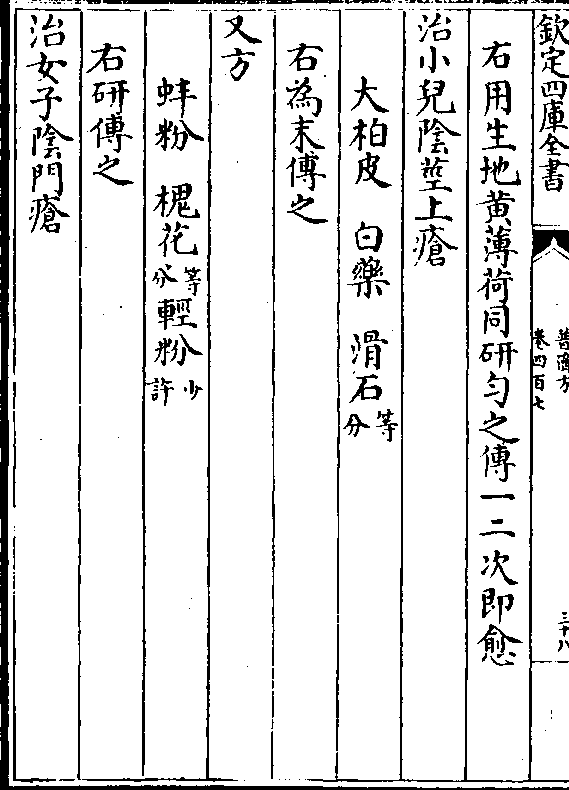 欽定四庫全書
普濟方
卷四百七
三十八
右用生地黄薄荷同研匀之傅一二次即愈
治小兒陰莖上瘡
大柏皮　白藥　滑石等分
右為末傅之
又方
蚌粉　槐花等分輕粉少許
右研傅之
治女子陰門瘡